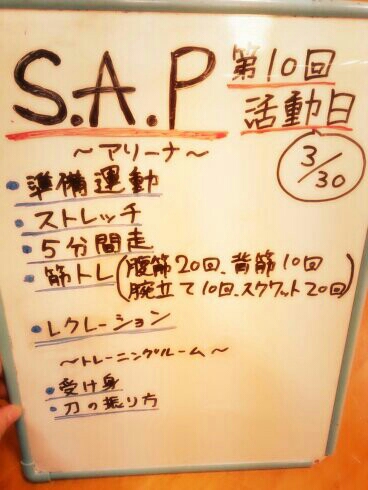 S.A.P 第10回
活動日
3/30
～アリーナ～
・準備運動
・ストレッチ
・5分間走
・筋トレ(腹筋20回、背筋10回
腕立て10回、スクワット20回)
・レクレーション
～トレーニングルーム～
・受け身
・刀の振り方